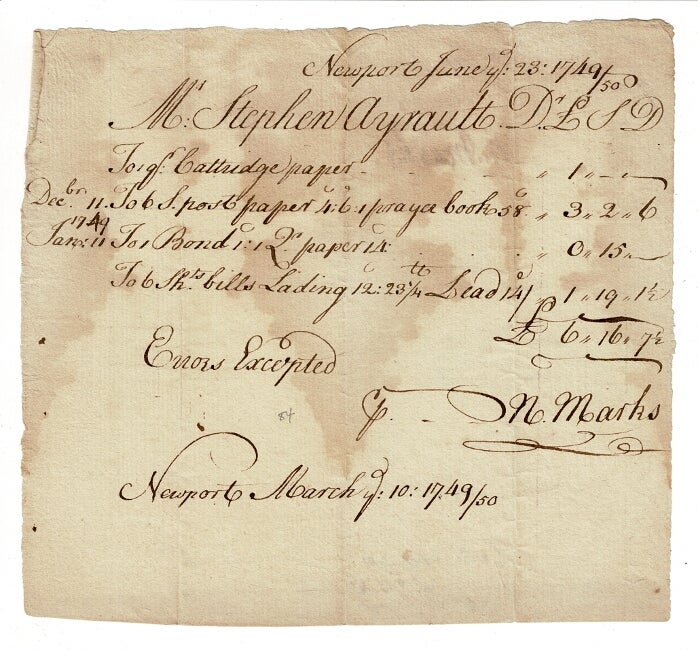 Newport June yᵉ: 23: 1749/50
Mʳ: Stephen Ayrault. Dʳ £ S D
To 1 qʳ Cattridge paper - - - " 1 " - " -
Decᵇʳ 11. To 6 S. post paper 4:6: 1 prayer book 58 " 3 " 2 " 6
1749
Janʸ: 11 To 1 Bond 1: 1 Qʳ paper 14: . . " 0 " 15 " -
To 6 Shᵗˢ bills Lading 12: 23 ¾ ᵗᵗ Lead 14/ " 1 " 19 " 1½
£ 6 " 16 " 7½
Errors Excepted
N. Marks
84
Newport March yᵉ: 10: 1749/50